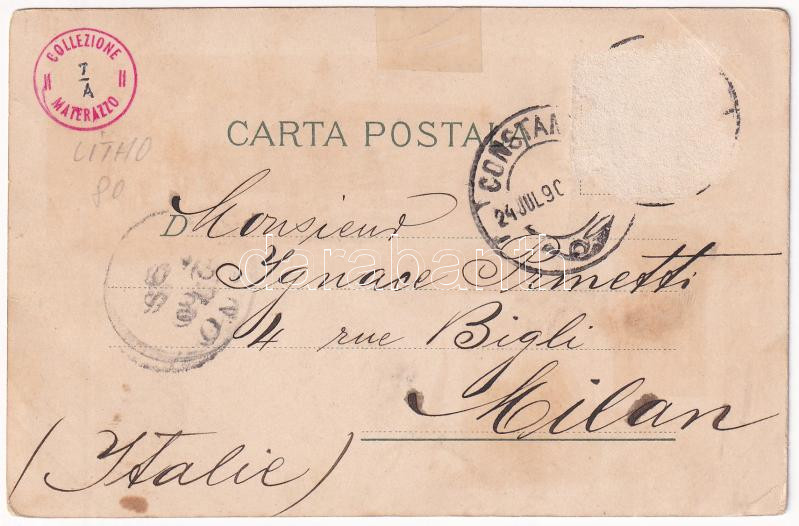 COLLEZIONE
T/A
MATERAZZO
LITHO
80
CARTA POSTALA
CONSTAN
24 JUL 90
D Monsieur
Ignace Pimetti
4 rue Bigli
Milan
(Italie)
darabanth.com